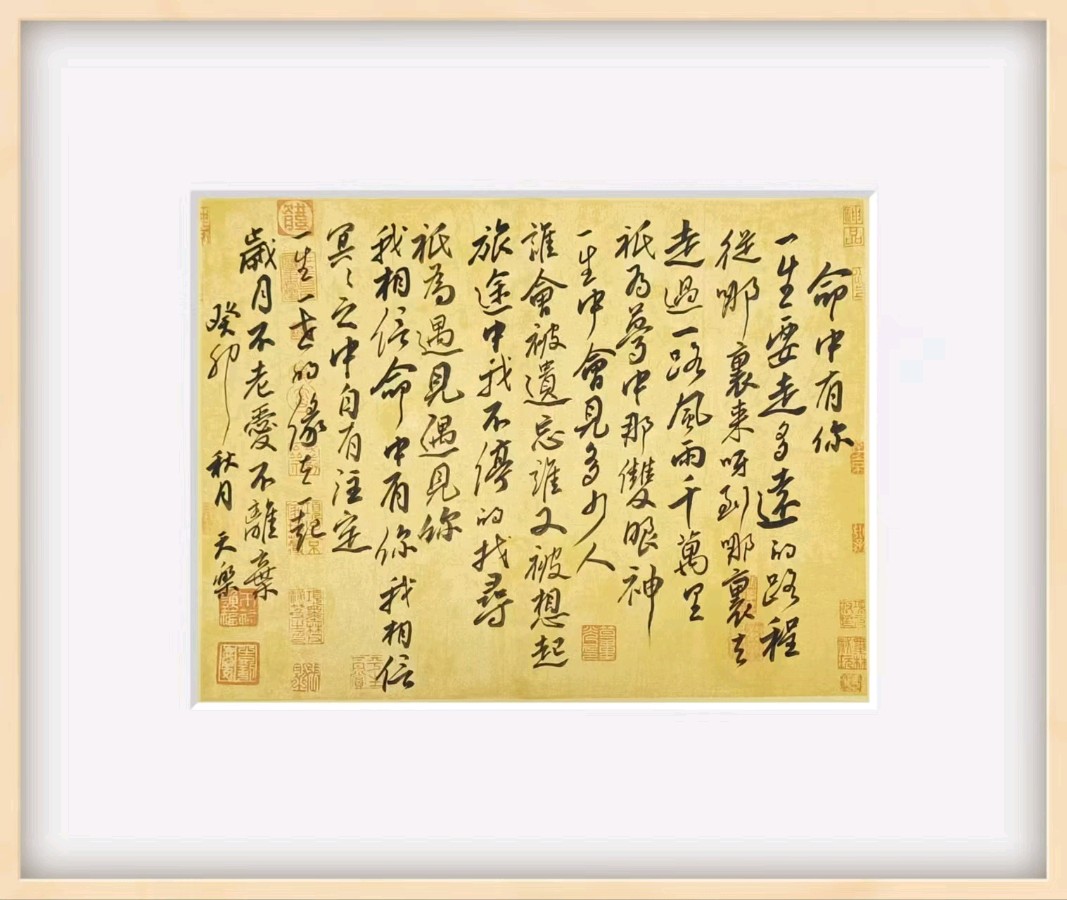 命中有你
一生要走多遠的路程
從哪裏来呀到哪裏去
走過一路風雨千萬里
祇為夢中那雙眼神
一生中會見多少人
誰會被遺忘誰又被想起
旅途中我不停的找尋
祇為遇見遇見你
我相信命中有你我相信
冥冥之中自有注定
一生一世的緣在一起
歲月不老愛不離棄
癸卯秋月天樂